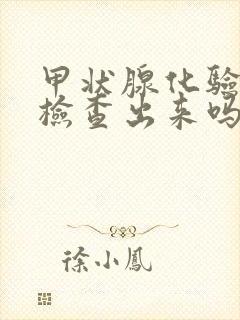 甲状腺化验
檢查出来吗
徐小鳳